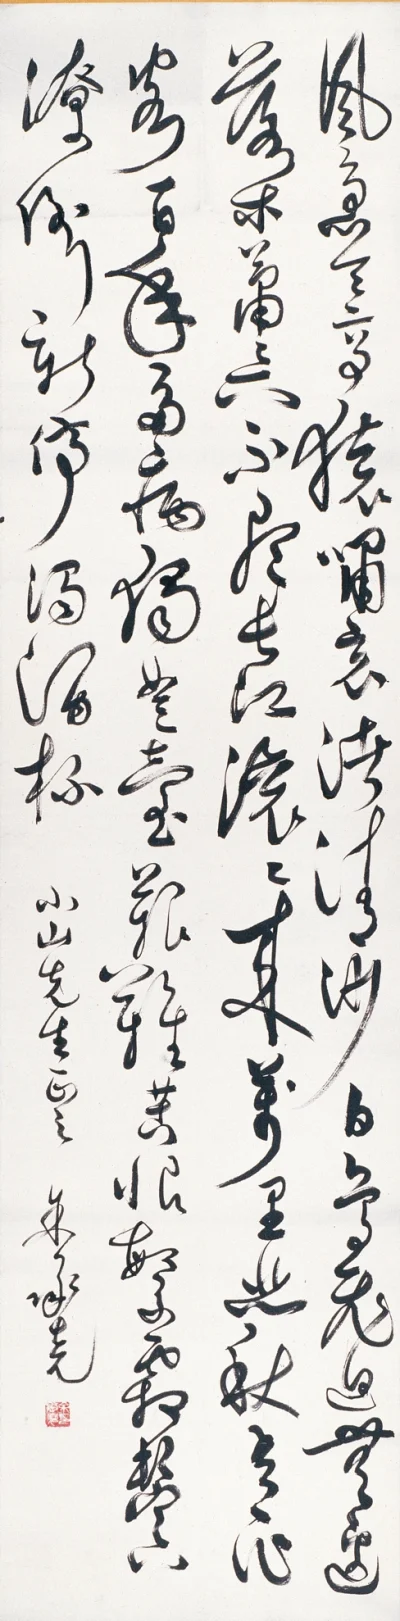 風急天高猿嘯哀渚清沙白鳥飛迴無邊
落木蕭〻下不盡長江滾〻來萬里悲秋常作
客百年多病獨登臺艱難苦恨繁霜鬢
潦倒新停濁酒杯
小山先生正之 朱